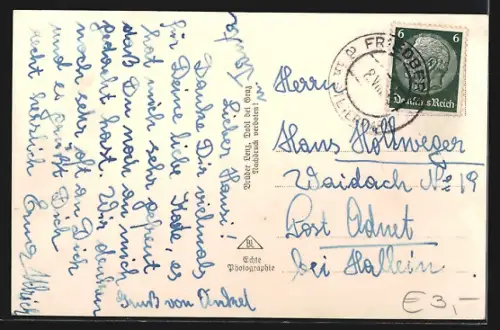 Lieber Hansi!
Danke Dir vielmals
für Deine liebe Karte, es
hat mich sehr gefreut
daß Du noch an mich
gedacht hast. Wir denken
noch sehr oft an Dich
und es grüßt Dich
recht herzlich
Erna
Gruß von Onkel
Brüder Lenz, Dobl bei Graz
Nachdruck verboten!
BL
Echte
Photographie
6
6
Deutsches Reich
Herrn
Hans Hollweger
Waidach No 19
Post Adnet
bei Hallein
€ 3,-